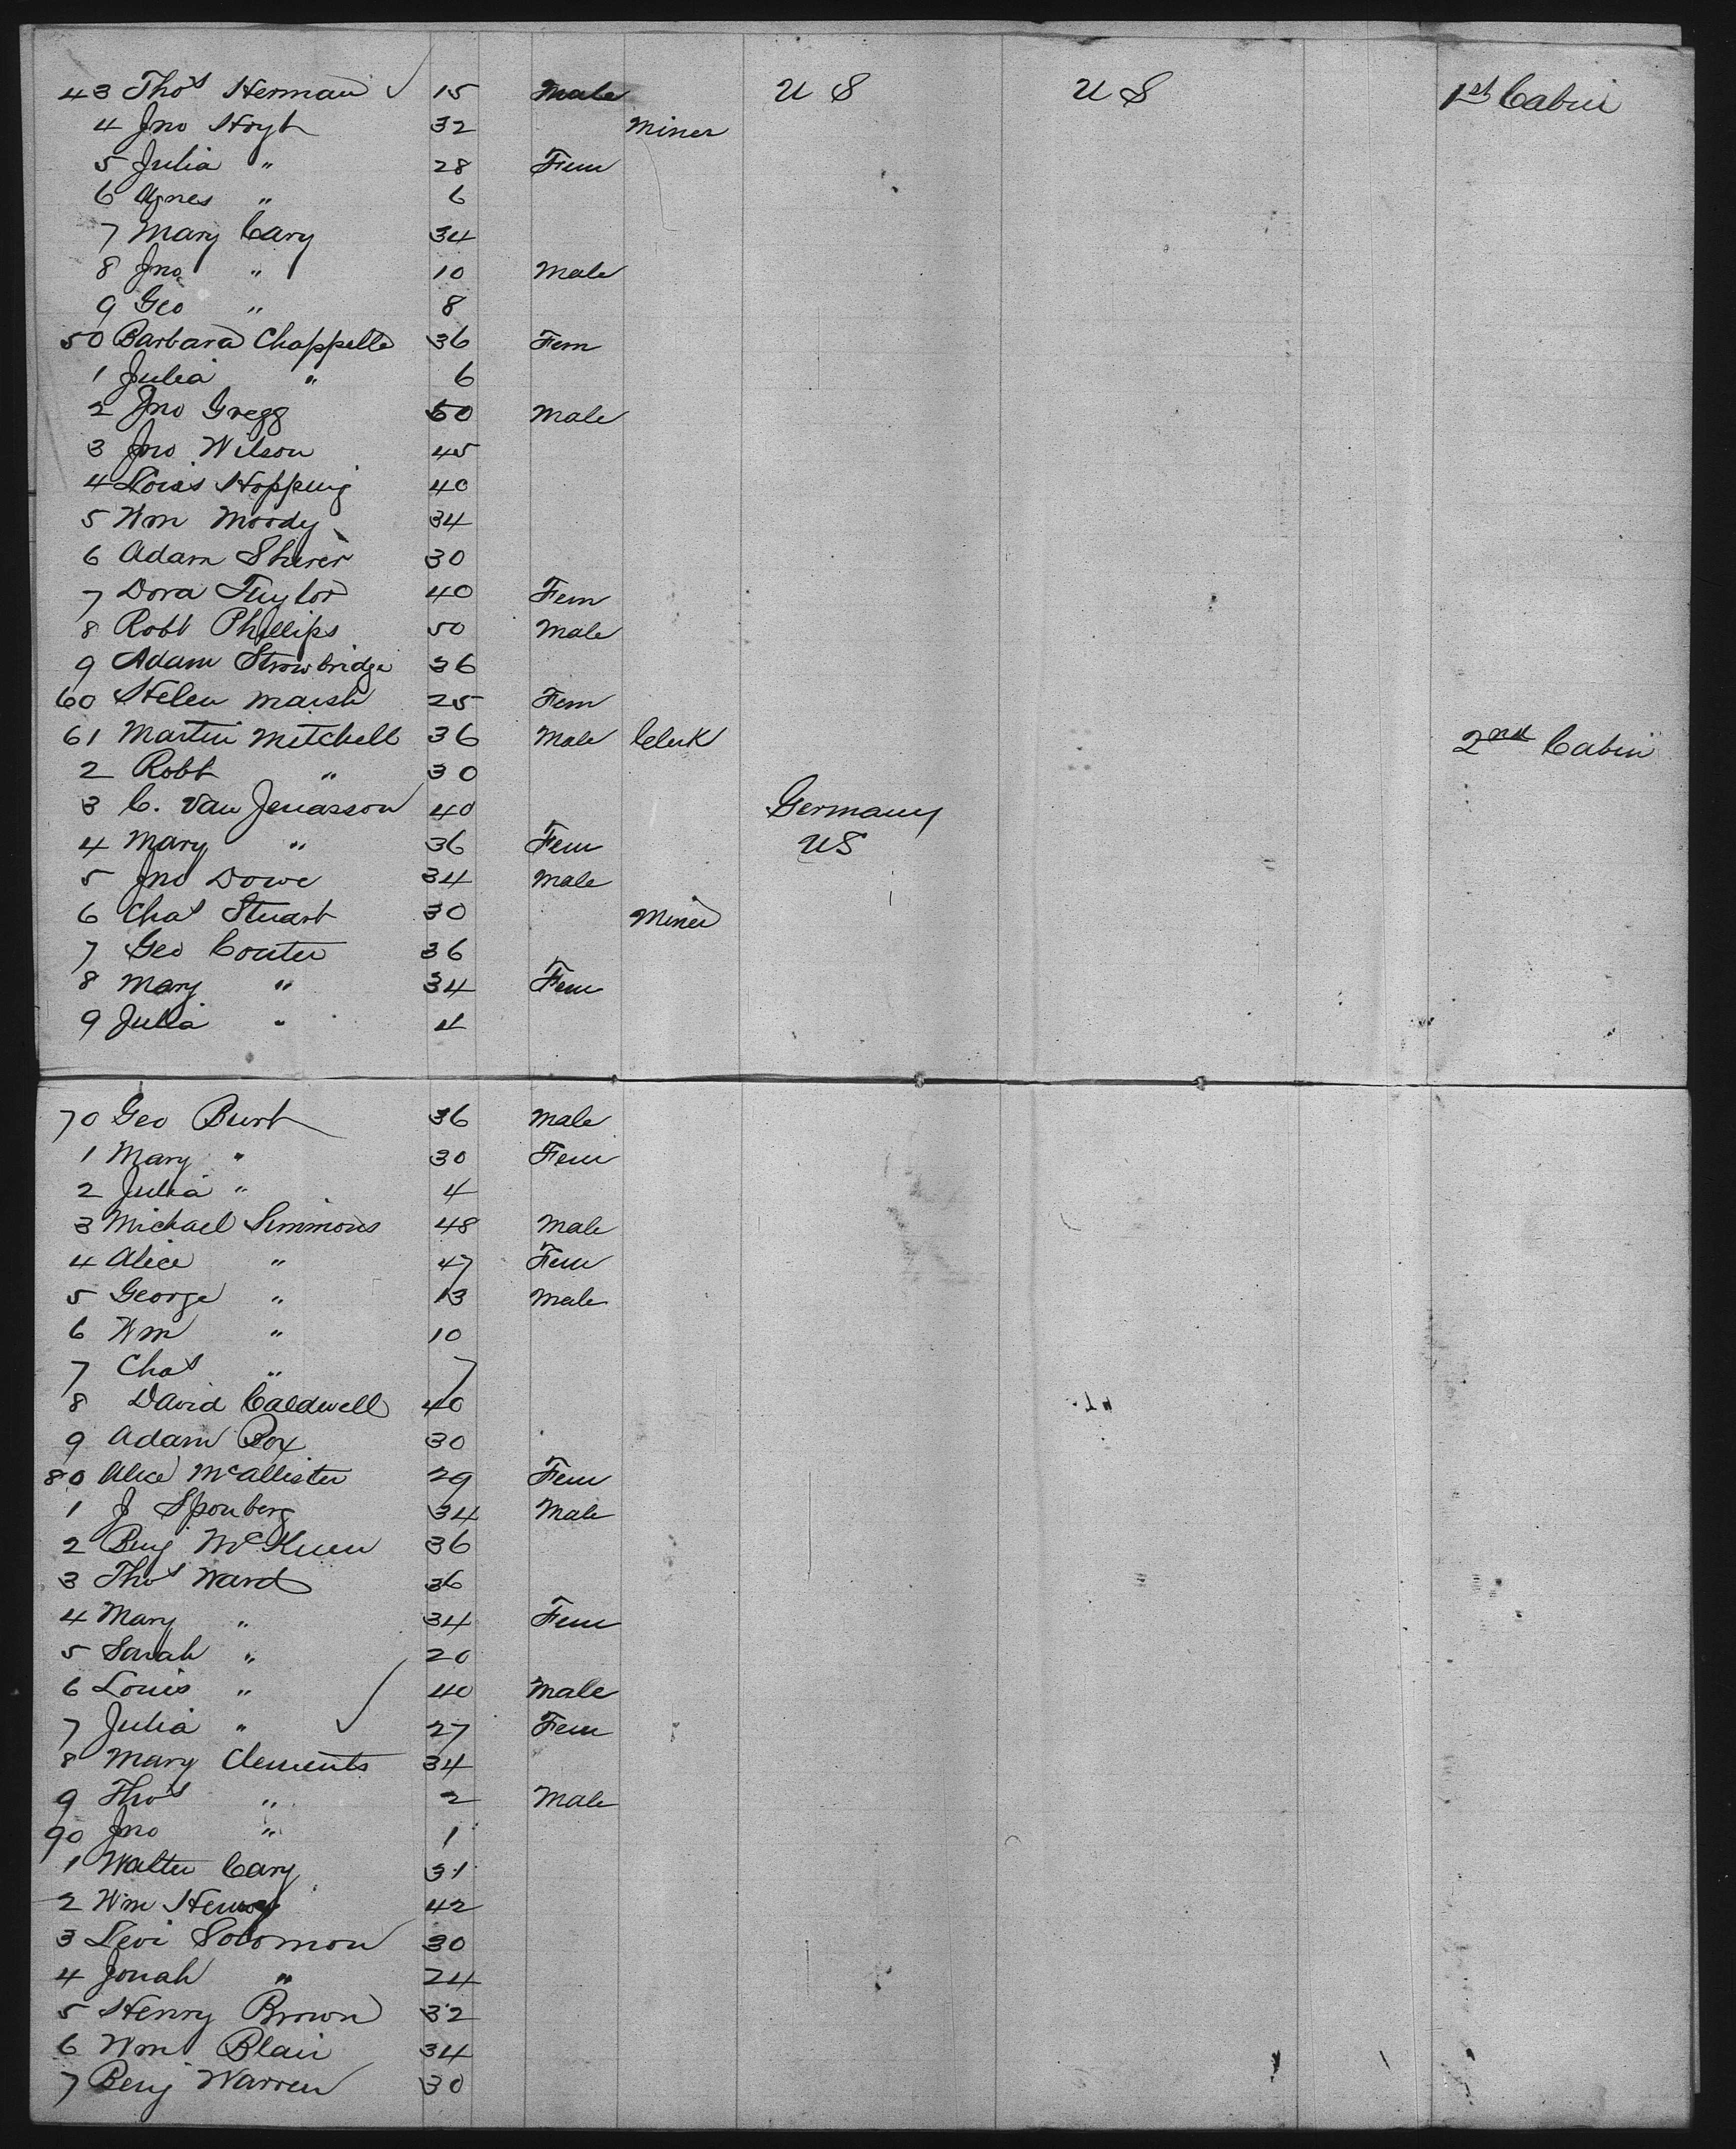 43 Thos Herman 15 Male U S U S 1st Cabin
4 Jno Hoyt 32 Miner
5 Julia " 28 Fem
6 Agnes " 6
7 Mary Cary 34
8 Jno " 10 Male
9 Geo " 8
50 Barbara Chappelle 36 Fem
1 Julia " 6
2 Jno Gregg 50 Male
3 Jno Wilson 45
4 Louis Hopping 40
5 Wm Moody 34
6 Adam Shirer 30
7 Dora Taylor 40 Fem
8 Robt Phillips 50 Male
9 Adam Strowbridge 36
60 Helen Marsh 25 Fem
61 Martin Mitchell 36 Male Clerk 2nd Cabin
2 Robt " 30
3 C. Van Jenasson 40 Germany
4 Mary " 36 Fem US
5 Jno Dowe 34 Male
6 Chas Stuart 30 Miner
7 Geo Couter 36
8 Mary " 34 Fem
9 Julia " 4
70 Geo Burt 36 Male
1 Mary " 30 Fem
2 Julia " 4
3 Michael Simmons 48 Male
4 Alice " 47 Fem
5 George " 13 Male
6 Wm " 10
7 Chas " 7
8 David Caldwell 40
9 Adam Rox 30
80 Alice McAllister 29 Fem
1 J Sponberg 34 Male
2 Benj McKuen 36
3 Thos Ward 36
4 Mary " 34 Fem
5 Sarah " 20
6 Louis " 40 Male
7 Julia " 27 Fem
8 Mary Clements 34
9 Thos " 2 Male
90 Jno " 1
1 Walter Cary 31
2 Wm 42
3 Levi Solomon 30
4 Jonah " 24
5 Henry Brown 32
6 Wm Blair 34
7 Benj Warren 30